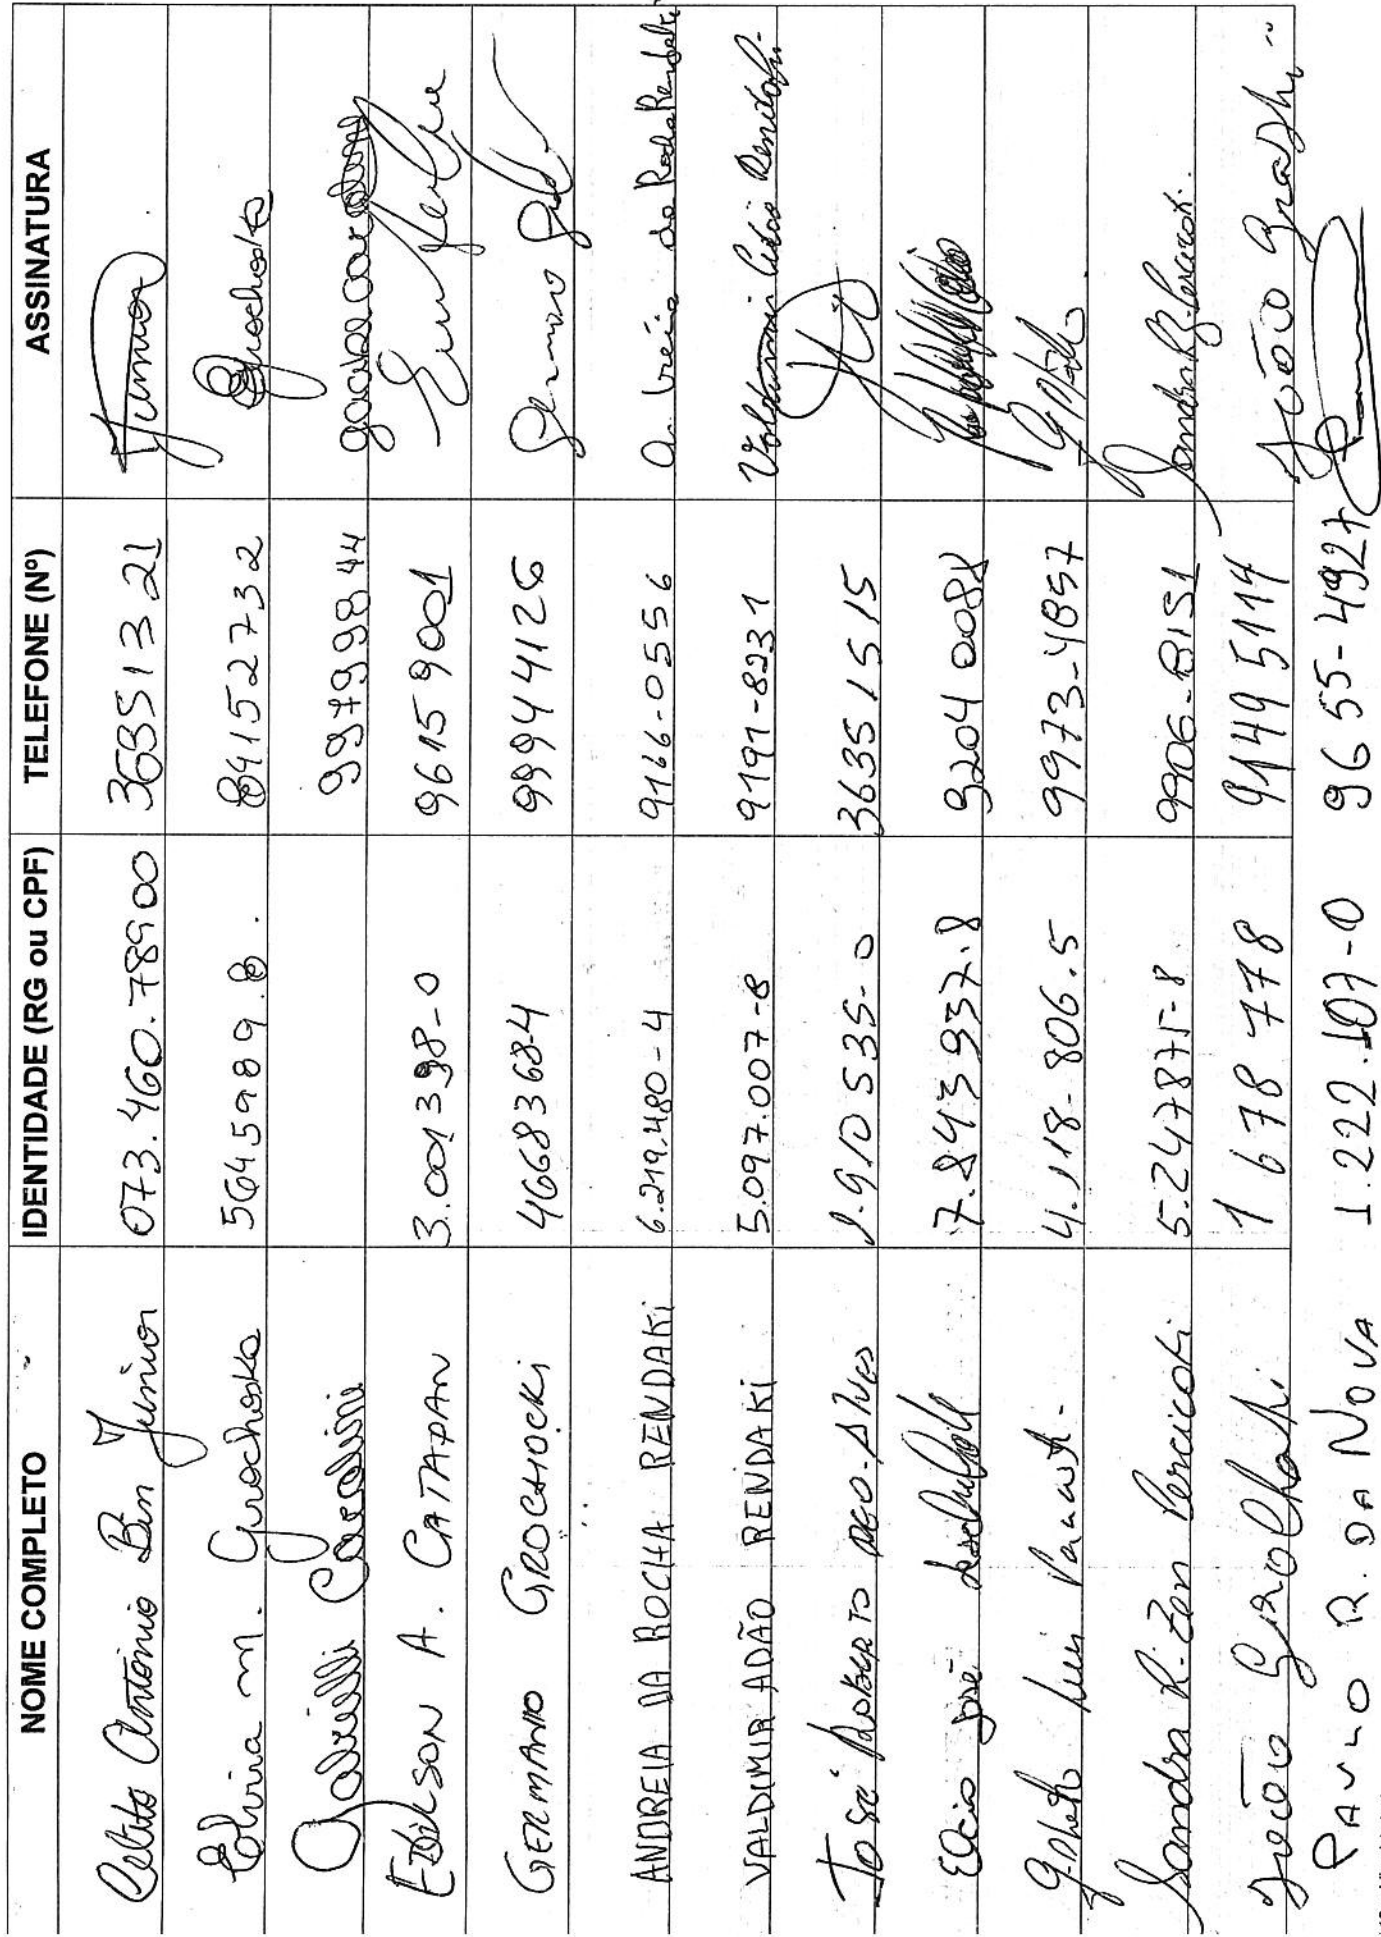 NOME COMPLETO IDENTIDADE (RG ou CPF) TELEFONE (Nº) ASSINATURA
Celito Antonio Bin Junior 073.460.78900 36351321 Junior
Elvina m. Grochoska 5645989.8 84152732 Grochoska
Gabrielli 99799844
EDILSON A. CATAPAN 3.001398-0 96159001
GERMANO GROCHOCKI 4668368-4 99944126 Germano
ANDREIA DA ROCHA RENDAKI 6.219.480-4 9166-0556 Andreia da Rocha Rendaki
VALDIMIR ADÃO RENDAKI 5.097.007-8 9191-8231 Valdimir Adão Rendaki
José Roberto Alves 1.910535-0 36351515
Elcio José 7.843937.8 92040088
Gilberto Luiz 4.118-806.5 9973-4857
Sandra R. Zen Percicoti 5.247875-8 9906-8151 Sandra R Z Percicoti
João 1 678 778 91495114 João
PAULO R. DA NOVA 1.222.107-0 9655-4927